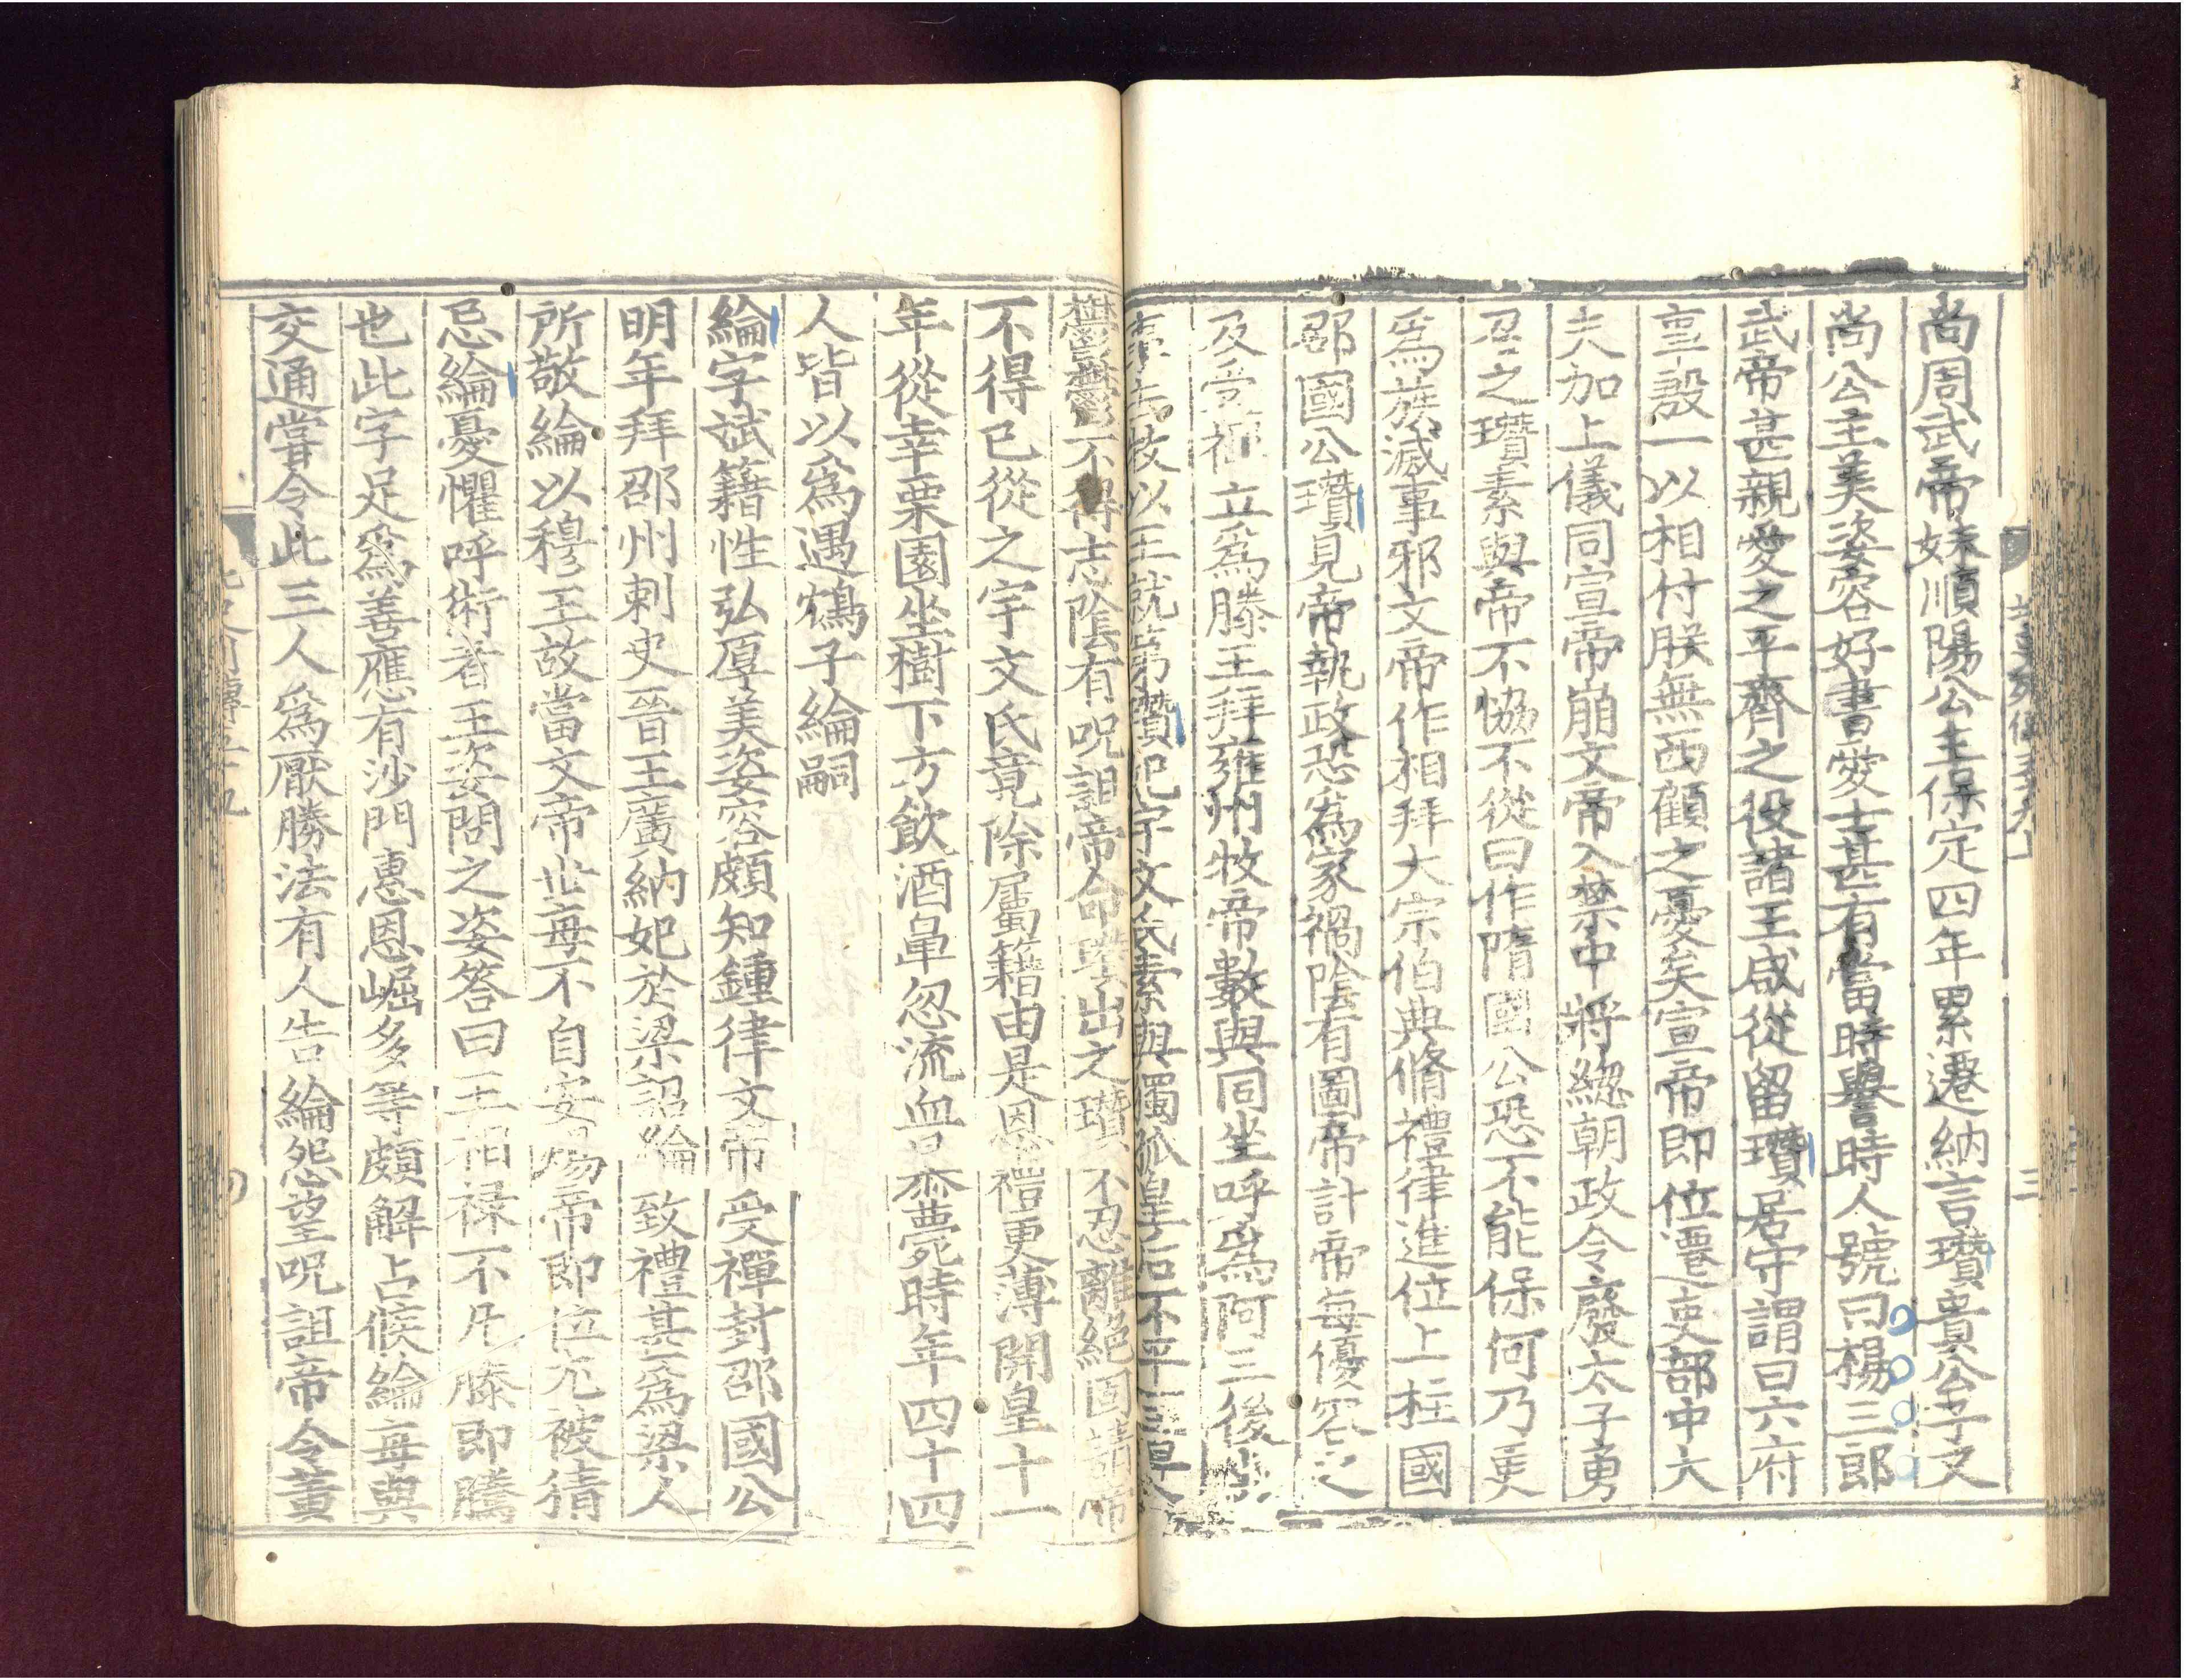 尚周武帝妹順陽公主保定四年累遷納言瓚貴公子又
尚公主美姿容好書愛士甚有當時譽時人號曰楊三郎
武帝甚親愛之平齊之役諸王咸從留瓚居守謂曰六府
事殷一以相付朕無西顧之憂矣宣帝即位遷吏部中大
夫加上儀同宣帝崩文帝入禁中將緫朝政令廢太子勇
召之瓚素與帝不恊不從曰作隋國公恐不能保何乃更
爲族滅事邪文帝作相拜大宗伯典脩禮律進位上柱國
邵國公瓚見帝執政恐爲家禍陰有圖帝計帝每優容之
及受禪立爲滕王拜雍州牧帝數與同坐呼爲阿三後坐
事去牧以王就第瓚妃宇文氏素與獨孤皇后不平
鬱鬱不得志陰有呪詛帝命瓚出之瓚不忍離絕固請帝
不得已從之宇文氏竟除屬籍由是恩禮更薄開皇十一
年從幸栗園坐樹下方飲酒鼻忽流血暴薨時年四十四
人皆以爲遇鴆子綸嗣
綸字斌籀性弘厚美姿容頗知鍾律文帝受禪封邵國公
明年拜邵州刺史晉王廣納妃於梁詔綸致禮甚爲梁人
所敬綸以穆王故當文帝世每不自安煬帝即位尤被猜
忌綸憂懼呼術者王姿問之姿答曰王相禄不凡滕即騰
也此字足爲善應有沙門惠恩崛多等頗解占候綸每與
交通嘗令此三人爲厭勝法有人告綸怨望呪詛帝令黃